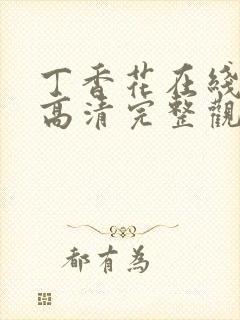 丁香花在綫
高清完整觀
都有為